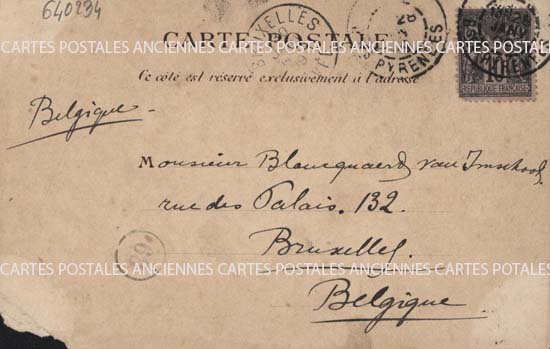 640234
CARTE POSTALE
BRUXELLES
28
PYRENEES
10
REPUBLIQUE FRANÇAISE
Ce côté est réservé exclusivement à l'adresse
Belgique
Monsieur Blancquaert van Imschoot
rue des Palais. 132.
Bruxelles.
69
CARTES POSTALES ANCIENNES CARTES POSTALES ANCIENNES CARTES POSTALES ANCIENNES CARTES POTALES
Belgique.